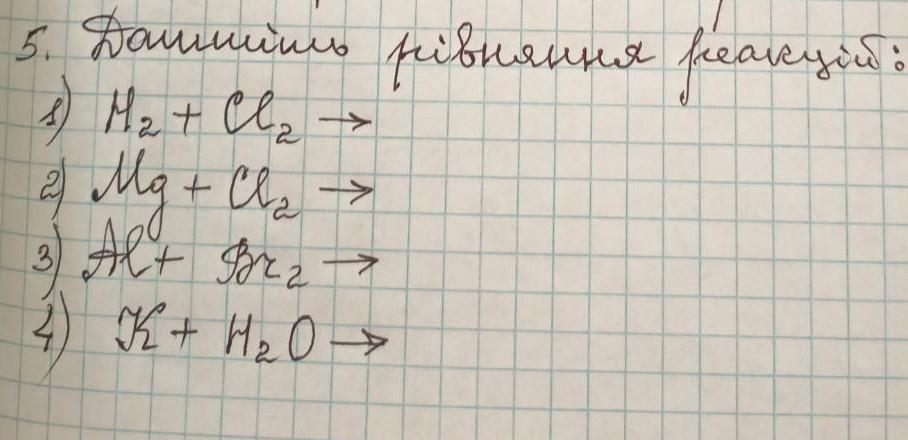 5. Допишіть рівняння реакцій:
1) H₂ + Cl₂ →
2) Mg + Cl₂ →
3) Al + Br₂ →
4) K + H₂O →